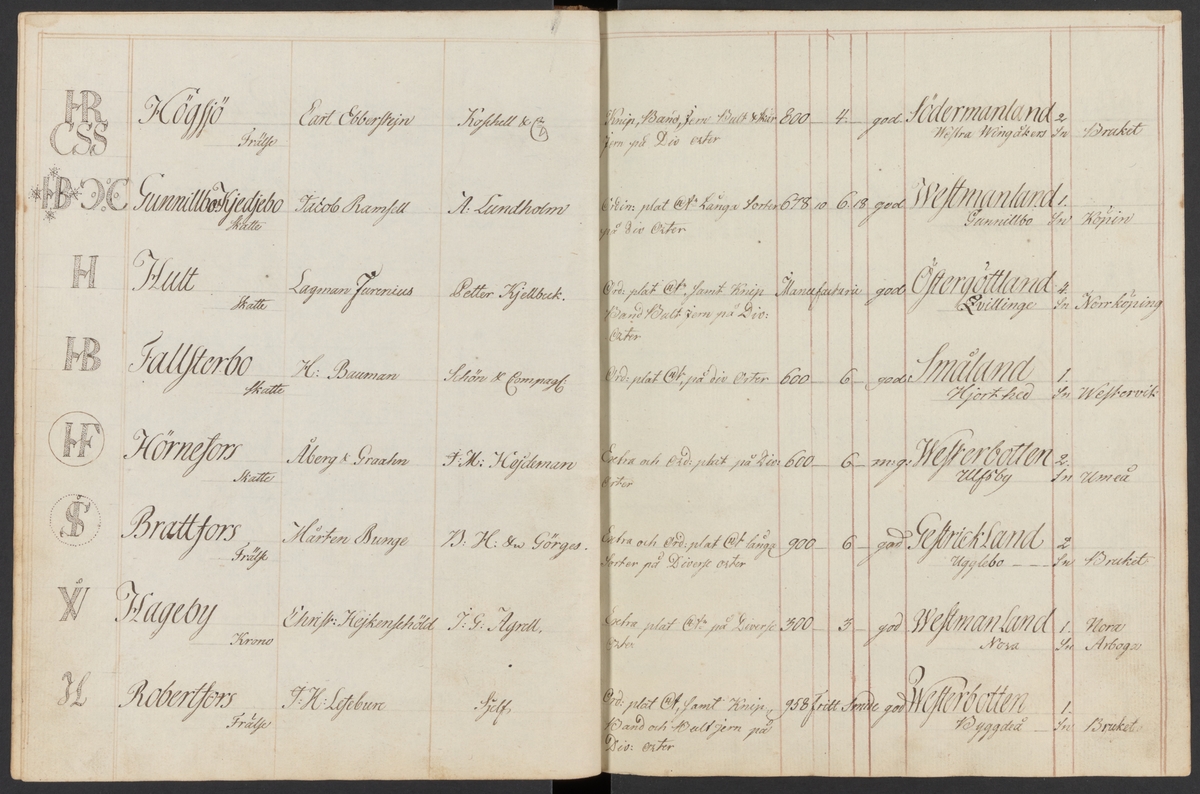 HR Högsjö Carl Ebberstejn Koschell & C Knip, Band, jern Bult & skär 800 — 4. — god Södermanland 2
CSS Frälse jern på Div orter Westra Wingåkers Sn Bruket
HB CC Gunnillbo Kjedjebo Jacob Ramsell A: Lundholm plat långa Sorter 678 10 6. 18. god Westmanland 1.
Skatte på div Orter Gunnillbo Sn Köpin
H Hult Lagman Jurenius Petter Kjellbeck. Ord: plat samt Knip Manufacturie god Östergöttland 4.
Skatte Band Bult jern på Div: Qvillinge Sn Norrköping
Orter
HB Fallsterbo H: Bauman Schön & Compagi: Ord: plat på div Orter 600 — 6 — god: Småland 1.
Skatte Hjorthed Sn Westervik
HF Hörnefors Åberg & Graahn J. M: Hojdeman Extra och Ord: plat på Div 600 — 6 — mg: Westerbotten 2.
Skatte orter Ulfsby Sn Umeå
S Brattfors Mårten Bunge B: H: Görges. Extra och Ord: plat långa 900 — 6 — god Gestrickland 2
Frälse Sorter på Diverse orter Ugglebo — — — Sn Bruket
Hageby Christ: Hejkenschöld J: G: Extra plat på Diverse 300 — 3 — god Westmanland 1. Nora
Krono orter Nora Sn Arboga
Robertfors J. H: Lefebure Sjelf. Ord: plat samt Knip, 958 fritt Smide god Westerbotten 1.
Frälse Band och Bult jern på Byggdeå Sn Bruket
Div: orter